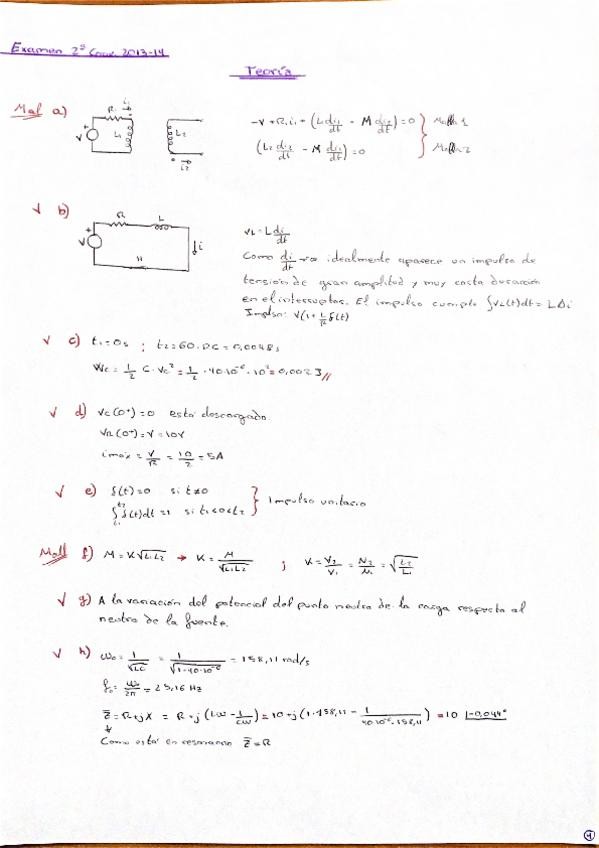 Examen 2º Cuat. 2013-14
Teoría
Mal a)
R
i₁
V
+
L₁
L₂
i₂
-V + R·i₁ + (L di₁/dt - M di₂/dt) = 0 } Malla 1
(L₂ di₂/dt - M di₁/dt) = 0 } Malla 2
√ b)
R
L
+
V
i
VL = L di/dt
Como di/dt → ∞ idealmente aparece un impulso de
tensión de gran amplitud y muy corta duración
en el interruptor. El impulso cumple ∫VL(t)dt = LΔi
√ c) t₁=0s ; t₂=60·
Wc = 1/2 C·Vc² = 1/2 · 40·10⁻⁶ · 10² = 0,002J //
√ d) Vc(0⁺)=0 está descargado.
VR(0⁺)=V=10V
imax = V/R = 10/2 = 5A
√ e) δ(t)=0 si t≠0
∫δ(t)dt=1 si t₁<0<t₂ } Impulso unitario
Mal f) M = K√L₁L₂ → K = M/√L₁L₂ ; K = V₂/V₁ = N₂/N₁ = √L₂/L₁
√ g) A la variación del potencial del punto neutro de la carga respecto al
neutro de la fuente.
√ h) ω₀ = 1/√LC = 1/√1·40·10⁻⁶ = 158,11 rad/s
f₀ = ω₀/2π = 25,16 Hz
Z̄ = R+jX = R+j(Lω - 1/Cω) = 10+j(1·158,11 - 1/40·10⁻⁶·158,11) = 10 |-0,044°
Como está en resonancia Z̄=R
1